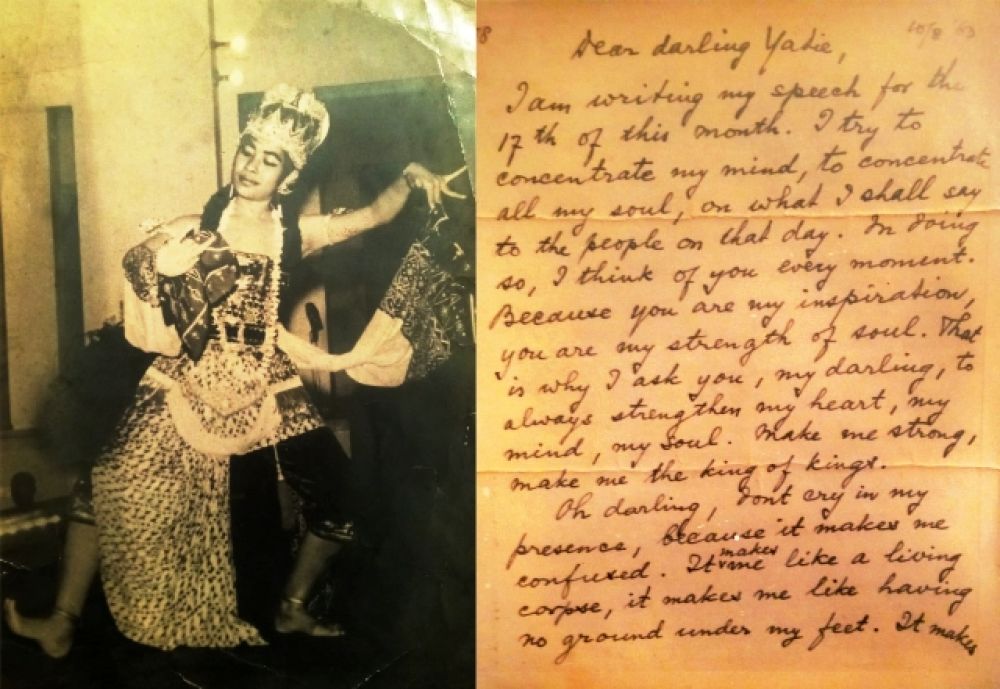 8
10/8 '63
Dear darling Yatie,
I am writing my speech for the
17 th of this month. I try to
concentrate my mind, to concentrate
all my soul, on what I shall say
to the people on that day. In doing
so, I think of you every moment.
Because you are my inspiration,
you are my strength of soul. That
is why I ask you, my darling, to
always strengthen my heart, my
mind, my soul. Make me strong,
make me the king of kings.
Oh darling, don't cry in my
presence, because it makes me
confused. It makes me like a living
corpse, it makes me like having
no ground under my feet. It makes